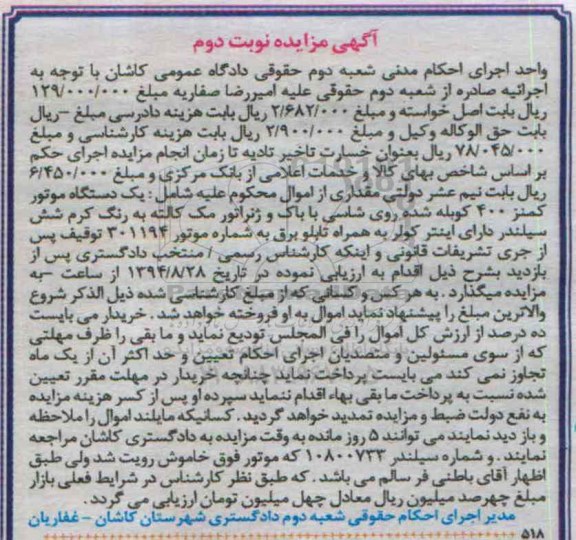 آگهی مزایده نوبت دوم
واحد اجرای احکام مدنی شعبه دوم حقوقی دادگاه عمومی کاشان با توجه به
اجرائیه صادره از شعبه دوم حقوقی علیه امیررضا صفاریه مبلغ ۱۲۹/۰۰۰/۰۰۰
ریال بابت اصل خواسته و مبلغ ۲/۶۸۲/۰۰۰ ریال بابت هزینه دادرسی مبلغ –ریال
بابت حق الوکاله وکیل و مبلغ ۲/۹۰۰/۰۰۰ ریال بابت هزینه کارشناسی و مبلغ
۷۸/۰۴۵/۰۰۰ ریال بعنوان خسارت تاخیر تادیه تا زمان انجام مزایده اجرای حکم
بر اساس شاخص بهای کالا و خدمات اعلامی از بانک مرکزی و مبلغ ۶/۴۵۰/۰۰۰
ریال بابت نیم عشر دولتی مقداری از اموال محکوم علیه شامل : یک دستگاه موتور
کمنز ۴۰۰ کوبله شده روی شاسی با باک و ژنراتور مک کالته به رنگ کرم شش
سیلندر دارای اینتر کولر به همراه تابلو برق به شماره موتور ۳۰۱۱۹۴ توقیف پس
از جری تشریفات قانونی و اینکه کارشناس رسمی / منتخب دادگستری پس از
بازدید بشرح ذیل اقدام به ارزیابی نموده در تاریخ ۱۳۹۴/۸/۲۸ از ساعت –به
مزایده میگذارد . به هر کس و کسانی که از مبلغ کارشناسی شده ذیل الذکر شروع
والاترین مبلغ را پیشنهاد نماید اموال به او فروخته خواهد شد . خریدار می بایست
ده درصد از ارزش کل اموال را فی المجلس تودیع نماید و ما بقی را ظرف مهلتی
که از سوی مسئولین و متصدیان اجرای احکام تعیین و حد اکثر آن از یک ماه
تجاوز نمی کند می بایست پرداخت نماید چنانچه خریدار در مهلت مقرر تعیین
شده نسبت به پرداخت ما بقی بهاء اقدام ننماید سپرده او پس از کسر هزینه مزایده
به نفع دولت ضبط و مزایده تمدید خواهد گردید . کسانیکه مایلند اموال را ملاحظه
و باز دید نمایند می توانند ۵ روز مانده به وقت مزایده به دادگستری کاشان مراجعه
نمایند . و شماره سیلندر ۱۰۸۰۰۷۳۳ که موتور فوق خاموش رویت شد ولی طبق
اظهار آقای باطنی فر سالم می باشد . که طبق نظر کارشناس در شرایط فعلی بازار
مبلغ چهرصد میلیون ریال معادل چهل میلیون تومان ارزیابی می گردد .
مدیر اجرای احکام حقوقی شعبه دوم دادگستری شهرستان کاشان – غفاریان
۵۱۸